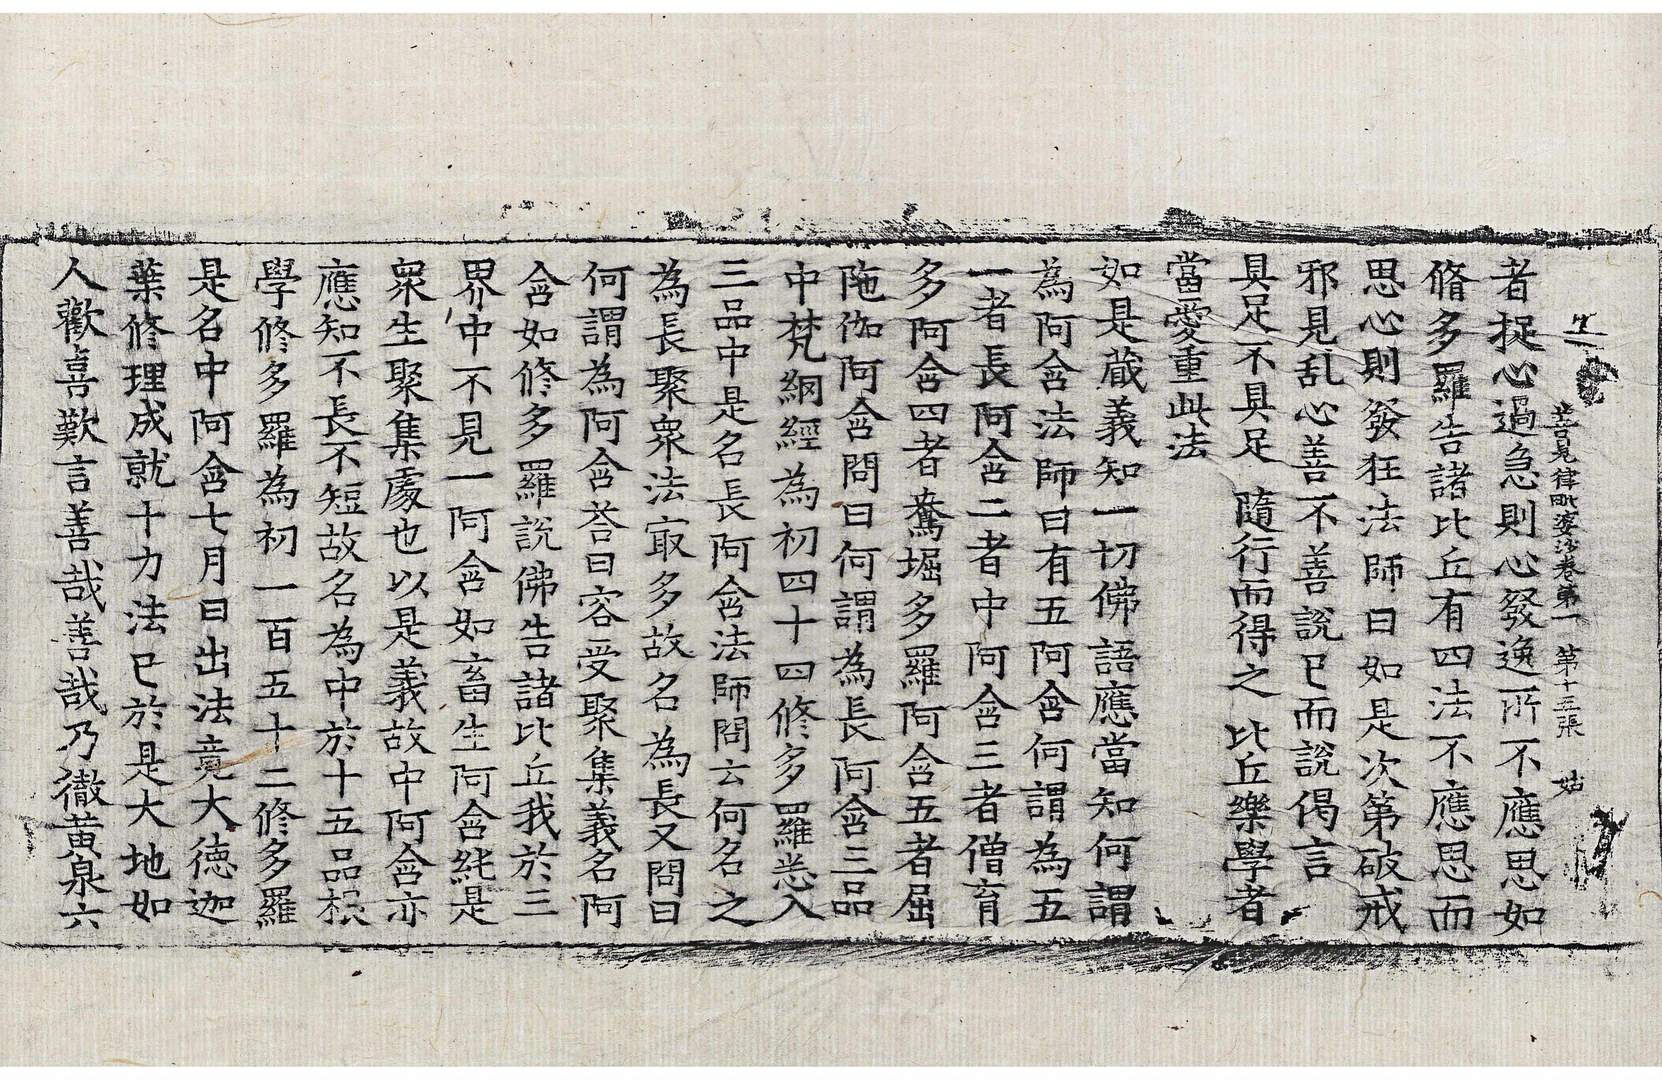 善見律毗婆沙卷第一　第十五張　姑
者捉心過急則心發逸所不應思如
脩多羅告諸比丘有四法不應思而
思心則發狂法師曰如是次第破戒
邪見乱心善不善說已而說偈言
具足不具足　隨行而得之　比丘樂學者
當愛重此法
如是藏義知一切佛語應當知何謂
為阿含法師曰有五阿含何謂為五
一者長阿含二者中阿含三者僧育
多阿含四者鴦堀多羅阿含五者屈
陁伽阿含問曰何謂為長阿含三品
中梵網經為初四十四修多羅悉入
三品中是名長阿含法師問云何名之
為長聚衆法㝡多故名為長又問曰
何謂為阿含荅曰容受聚集義名阿
含如修多羅說佛告諸比丘我於三
界中不見一阿含如畜生阿含純是
衆生聚集處也以是義故中阿含亦
應知不長不短故名為中於十五品根
學修多羅為初一百五十二修多羅
是名中阿含七月日出法竟大德迦
葉修理成就十力法已於是大地如
人歡喜歎言善哉善哉乃徹黃泉六